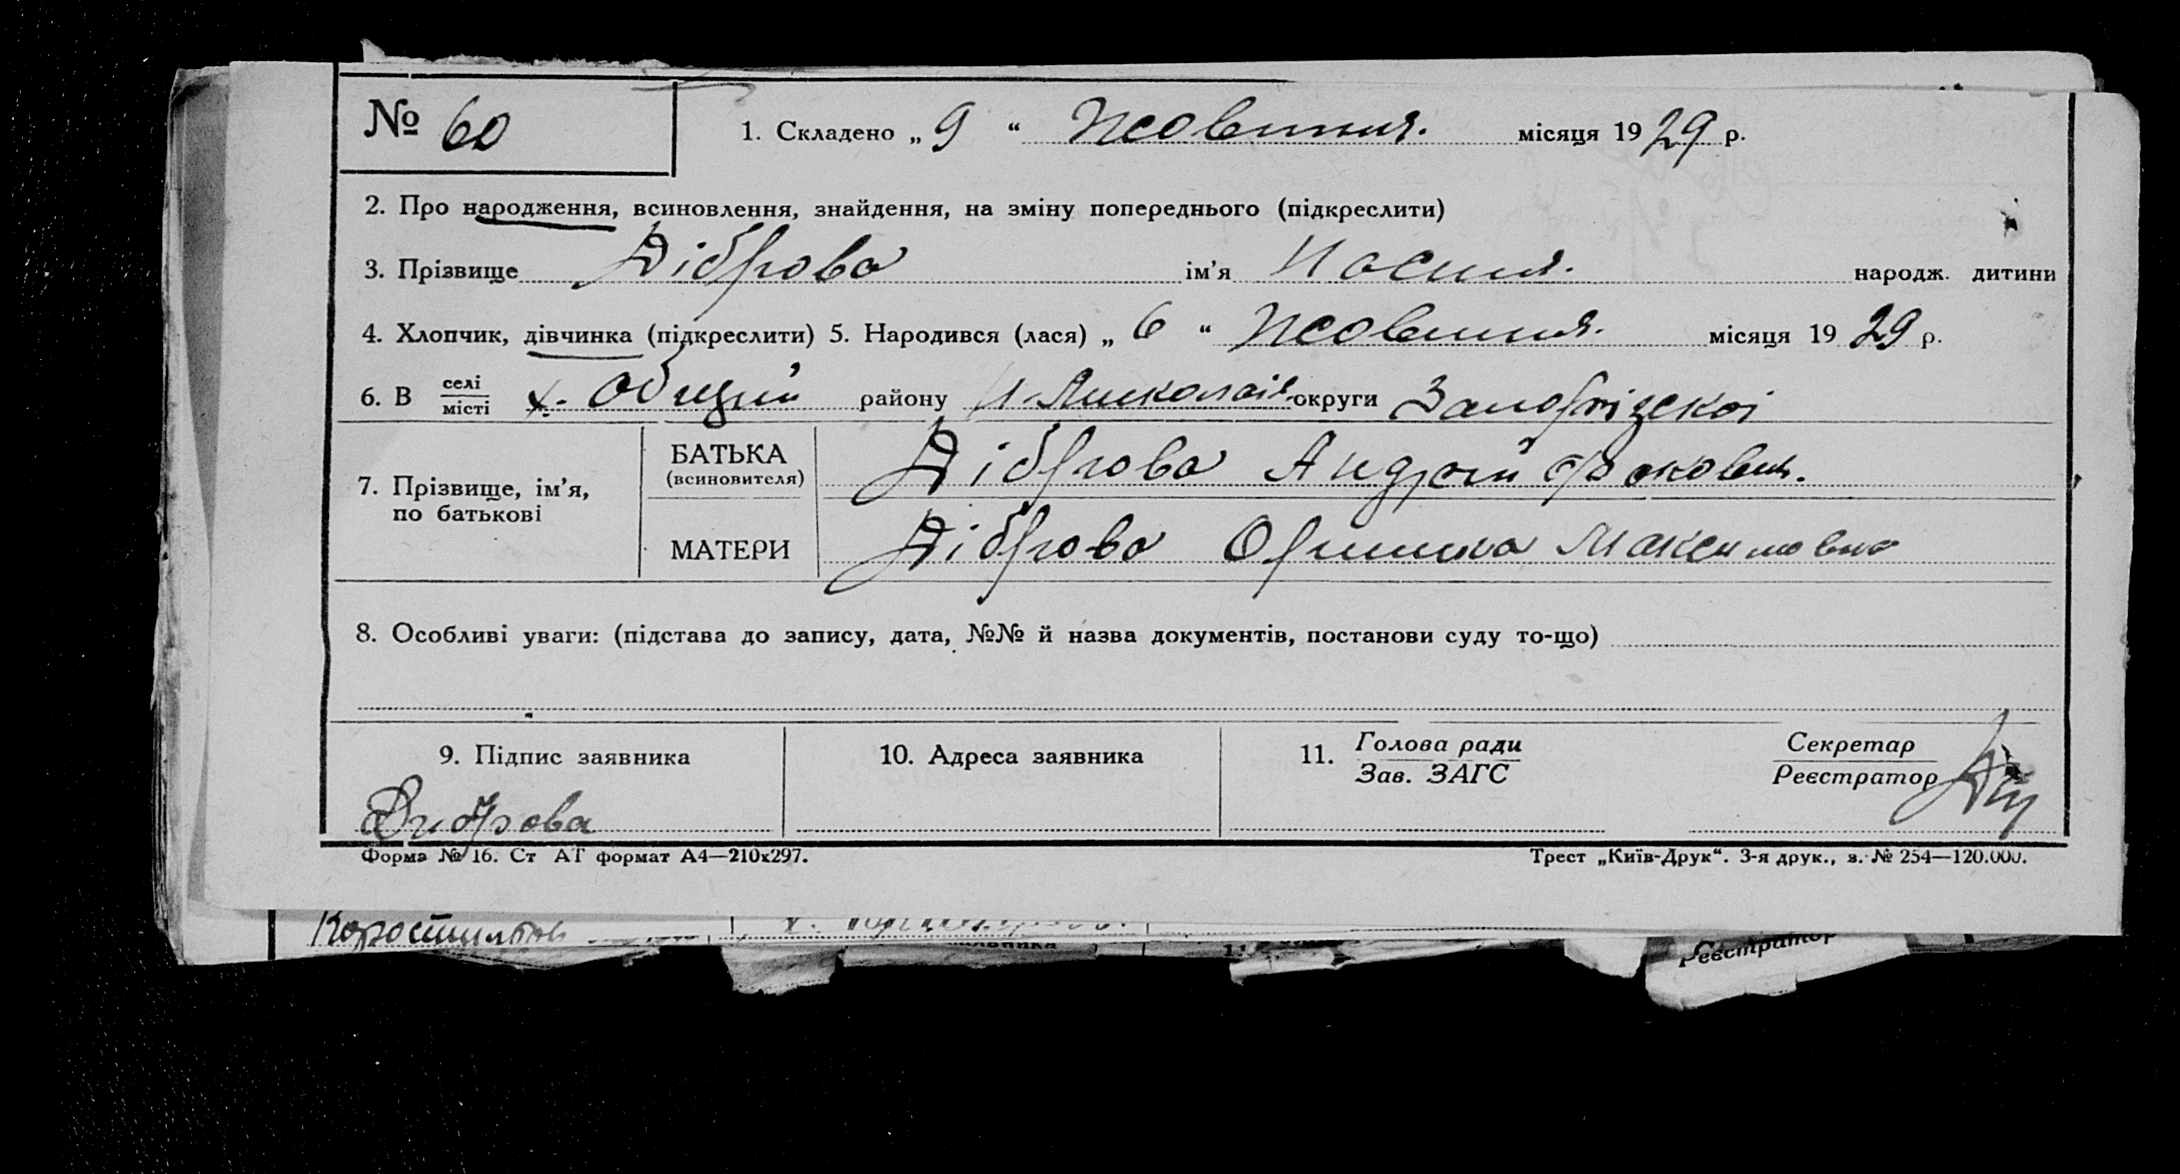 № 60
1. Складено „ 9 “ Жовтня. місяця 1929 р.
2. Про народження, всиновлення, знайдення, на зміну попереднього (підкреслити)
3. Прізвище Діброва ім’я народж. дитини
4. Хлопчик, дівчинка (підкреслити) 5. Народився (лася) „ 6 “ Жовтня. місяця 1929 р.
6. В селі/місті х. Общий району Н-Миколаів. округи Запорізскоі
7. Прізвище, ім’я, по батькові
БАТЬКА (всиновителя) Діброва Андрій
МАТЕРИ Діброва Оришка Максимовна
8. Особливі уваги: (підстава до запису, дата, №№ й назва документів, постанови суду то-що)
9. Підпис заявника
10. Адреса заявника
11. Голова ради
Зав. ЗАГС
Секретар
Реєстратор
Диброва
Форма № 16. Ст АТ формат А4—210х297.
Трест „Київ-Друк“. 3-я друк., з. № 254—120.000.
Реєстратор